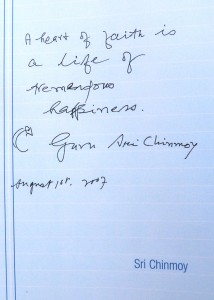 A heart of faith is
a life of
tremendous
happiness.
Guru Sri Chinmoy
August 1st, 2007
Sri Chinmoy